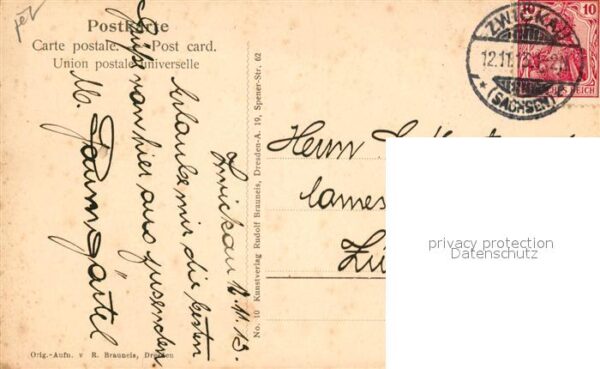 Postkarte
Carte postale. — Post card.
Union postale universelle
Zwickau 12.11.13.
Erlaube mir die besten
Grüße von hier aus zu senden
M. Baumgärtel
No. 10 Kunstverlag Rudolf Brauneis, Dresden-A. 19, Spener-Str. 62
Orig.-Aufn. v R. Brauneis, Dresden
ZWICKAU
12.11.13
* (SACHSEN)
10
REICH
Herrn
privacy protection
Datenschutz